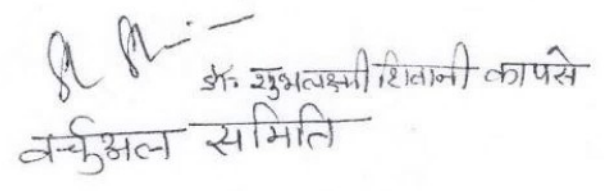 डॉ. शुभलक्ष्मी शितानी कापसे
वर्चुअल समिति